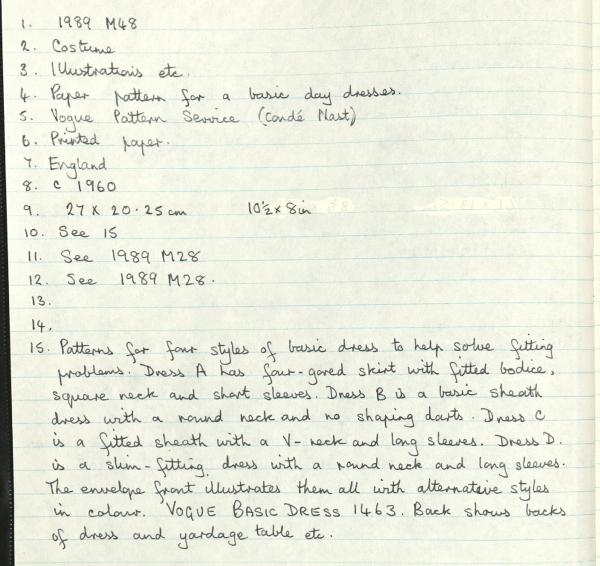 1. 1989 M48
2. Costume
3. Illustrations etc.
4. Paper pattern for a basic day dresses.
5. Vogue Pattern Service (Condé Nast)
6. Printed paper.
7. England
8. c 1960
9. 27 x 20·25 cm 10½ x 8in
10. See 15
11. See 1989 M28
12. See 1989 M28.
13.
14.
15. Patterns for four styles of basic dress to help solve fitting
problems. Dress A has four-gored skirt with fitted bodice,
square neck and short sleeves. Dress B is a basic sheath
dress with a round neck and no shaping darts. Dress C
is a fitted sheath with a V-neck and long sleeves. Dress D.
is a slim-fitting dress with a round neck and long sleeves.
The envelope front illustrates them all with alternative styles
in colour. VOGUE BASIC DRESS 1463. Back shows backs
of dress and yardage table etc.